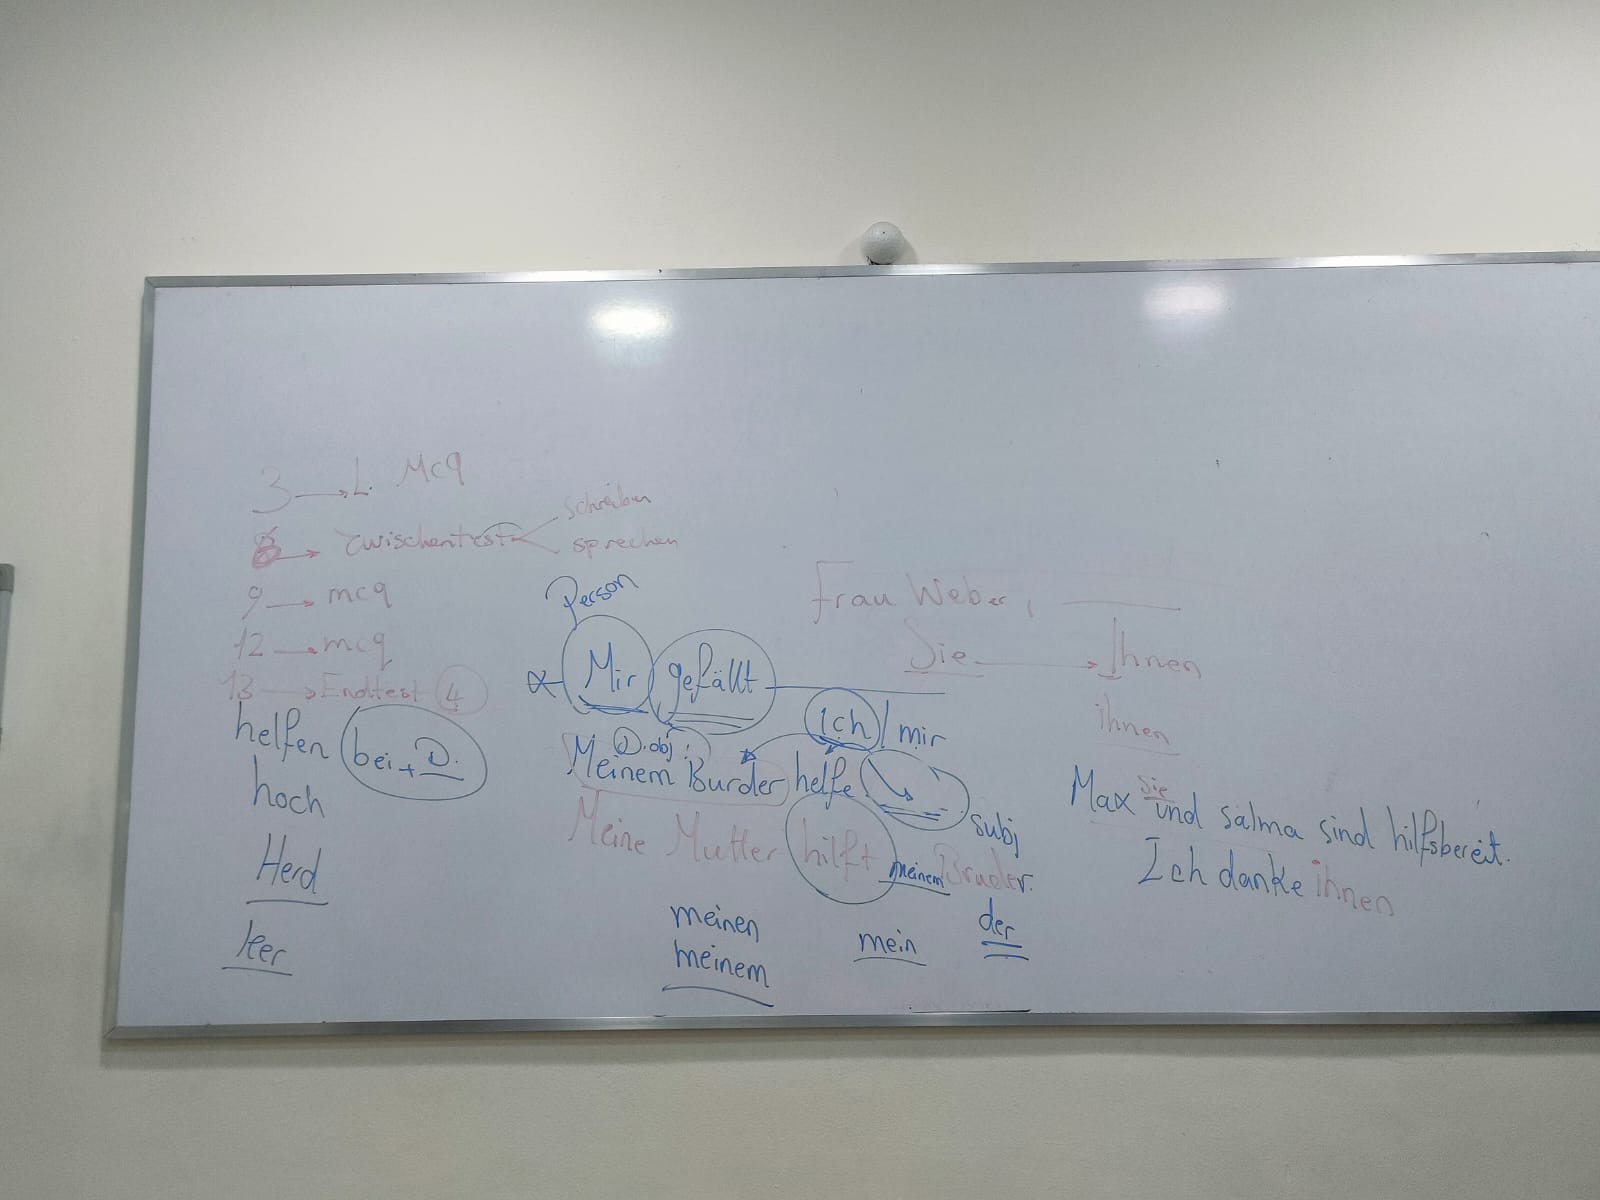 3 → L. Mcq
8 → Zwischentest
schreiben
sprechen
9 → mcq
12 → mcq
13 → Endtest 4
helfen bei + D.
hoch
Herd
leer
Person
Mir gefällt
Ich / mir
D. obj
Meinem Burder helfe
subj
Meine Mutter hilft meinem Bruder.
meinen
meinem
mein
der
Frau Weber,
Sie → Ihnen
ihnen
Sie
Max und salma sind hilfsbereit.
Ich danke ihnen